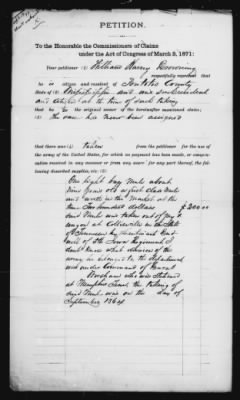 PETITION.
To the Honorable the Commissioners of Claims
under the Act of Congress of March 3, 1871:
Your petitioner (1) William Henry Browning
respectfully represent that
he is citizen and resident of Pontotoc County
State of (2) Mississippi and was
and at the time of such taking
that he is the original owner of the hereinafter mentioned claim;
(3) The same has never been assigned
that there was (4) taken from the petitioner for the use of
the army of the United States, for which no payment has been made, or compensation
received in any manner or from any source for any part thereof, the following
described supplies, etc: (5)
One light bay Mule about
nine years old a first class Mule
and worth in the Market at the
time Two hundred dollars $200.00
said Mule was taken out of my
wagon at Collierville in the State
of Tennessee by
of 7th Iowa Regiment I
know what of the
army he belonged to the Department
was under Command of General
who was stationed
at Memphis Tenn. the taking of
said Mule was on the day of
September 1864